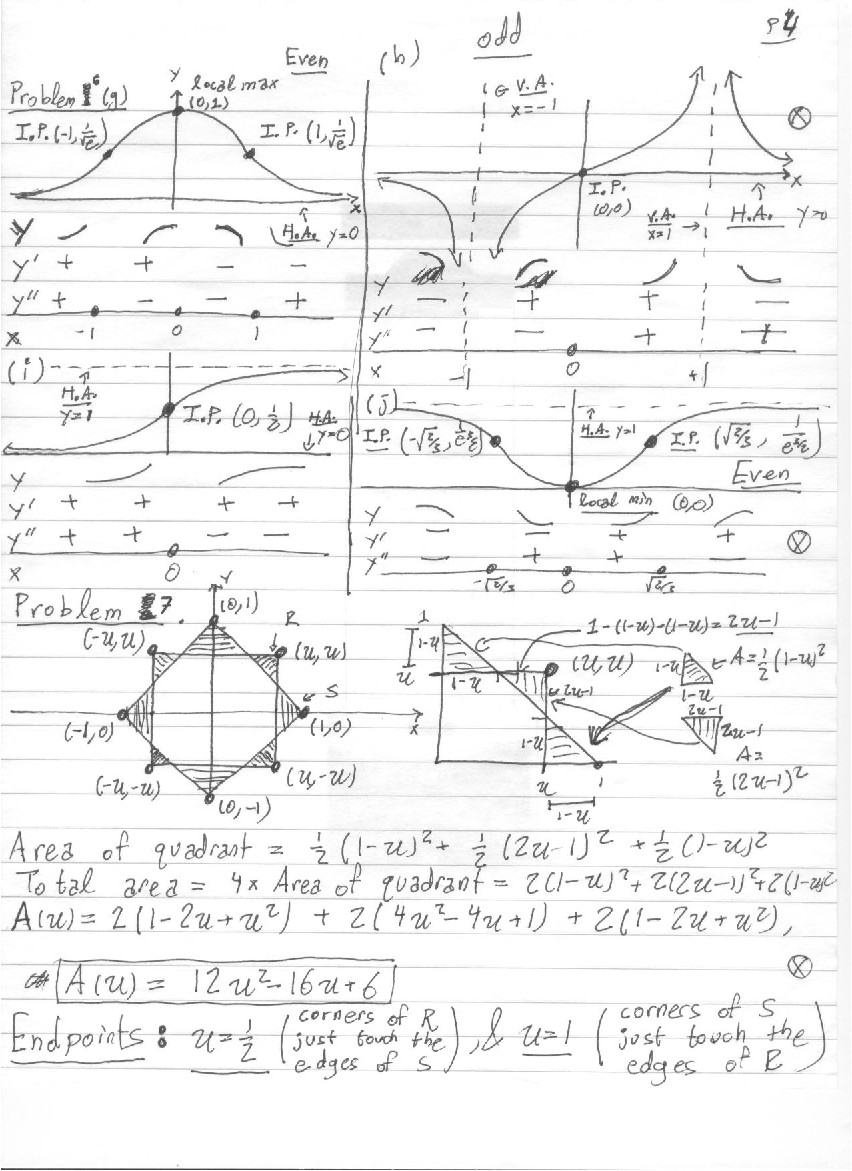 P4
Problem 6 (g)
Even
Y
local max
(0,1)
I.P. (-1, 1/√e)
I.P. (1, 1/√e)
x
H.A. y=0
Y
Y' + + − −
Y'' + − − +
x -1 0 1
(h)
odd
V.A.
x=-1
I.P.
(0,0)
V.A.
x=1 →
H.A. y=0
x
Y
Y' − + + −
Y'' − − + +
x -1 0 +1
(i)
H.A.
y=1
I.P. (0, 1/2)
H.A.
y=0
Y
Y' + + + +
Y'' + + − −
x 0
(j)
H.A. y=1
I.P. (-√2/3, 1/e^3/2)
I.P. (√2/3, 1/e^3/2)
Even
local min (0,0)
Y
Y' − − + +
Y'' − + + −
-√2/3 0 √2/3
Problem 7.
Y
(0,1)
R
(-u,u)
(u,u)
S
(-1,0)
(1,0)
x
(-u,-u)
(u,-u)
(0,-1)
1
1-u
u
1-u
1-(1-u)-(1-u)=2u-1
(u,u)
2u-1
1-u
u
1
1-u
1-u
A=1/2(1-u)²
1-u
2u-1
2u-1
A=
1/2(2u-1)²
Area of quadrant = 1/2(1-u)² + 1/2(2u-1)² + 1/2(1-u)²
Total area = 4x Area of quadrant = 2(1-u)² + 2(2u-1)² + 2(1-u)²
A(u) = 2(1-2u+u²) + 2(4u²-4u+1) + 2(1-2u+u²),
A(u) = 12u²-16u+6
Endpoints: u=1/2 (corners of R just touch the edges of S), & u=1 (corners of S just touch the edges of R)